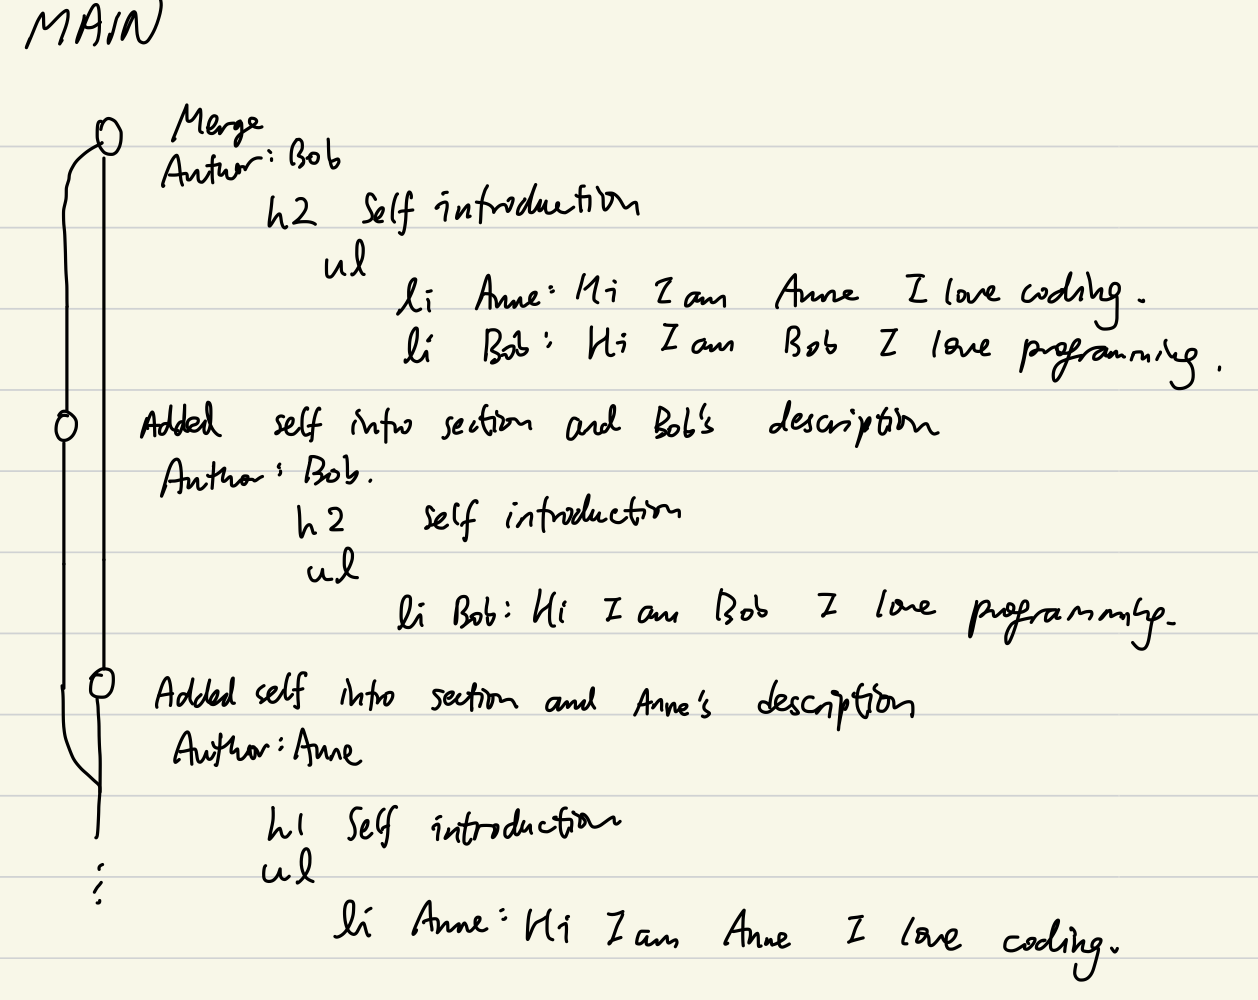 MAIN
Merge
Author: Bob
h2 Self introduction
ul
li Anne: Hi I am Anne I love coding.
li Bob: Hi I am Bob I love programming.
Added self intro section and Bob's description
Author: Bob.
h2 self introduction
ul
li Bob: Hi I am Bob I love programming.
Added self intro section and Anne's description
Author: Anne
h1 Self introduction
ul
li Anne: Hi I am Anne I love coding.